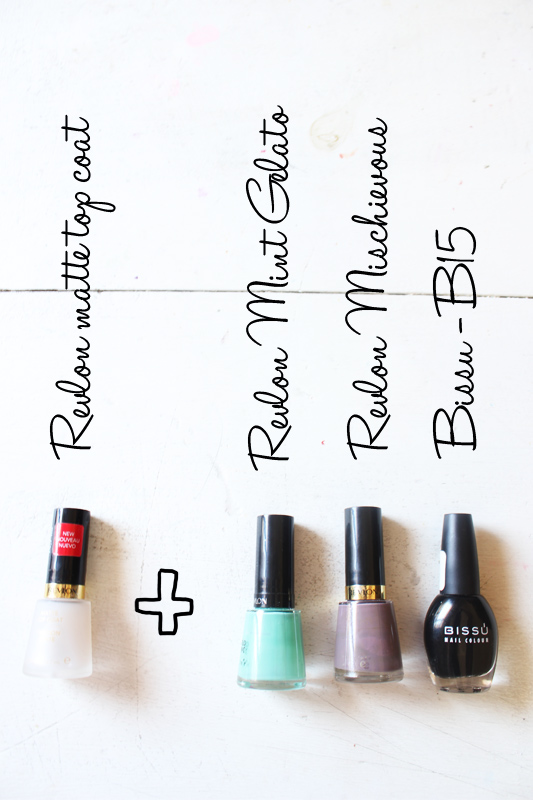 Revlon matte top coat
Revlon Mint Gelato
Revlon Mischievous
Bissu - B15
NEW
NOUVEAU
NUEVO
REVLON
REVLON
BISSÚ
NAIL COLOUR